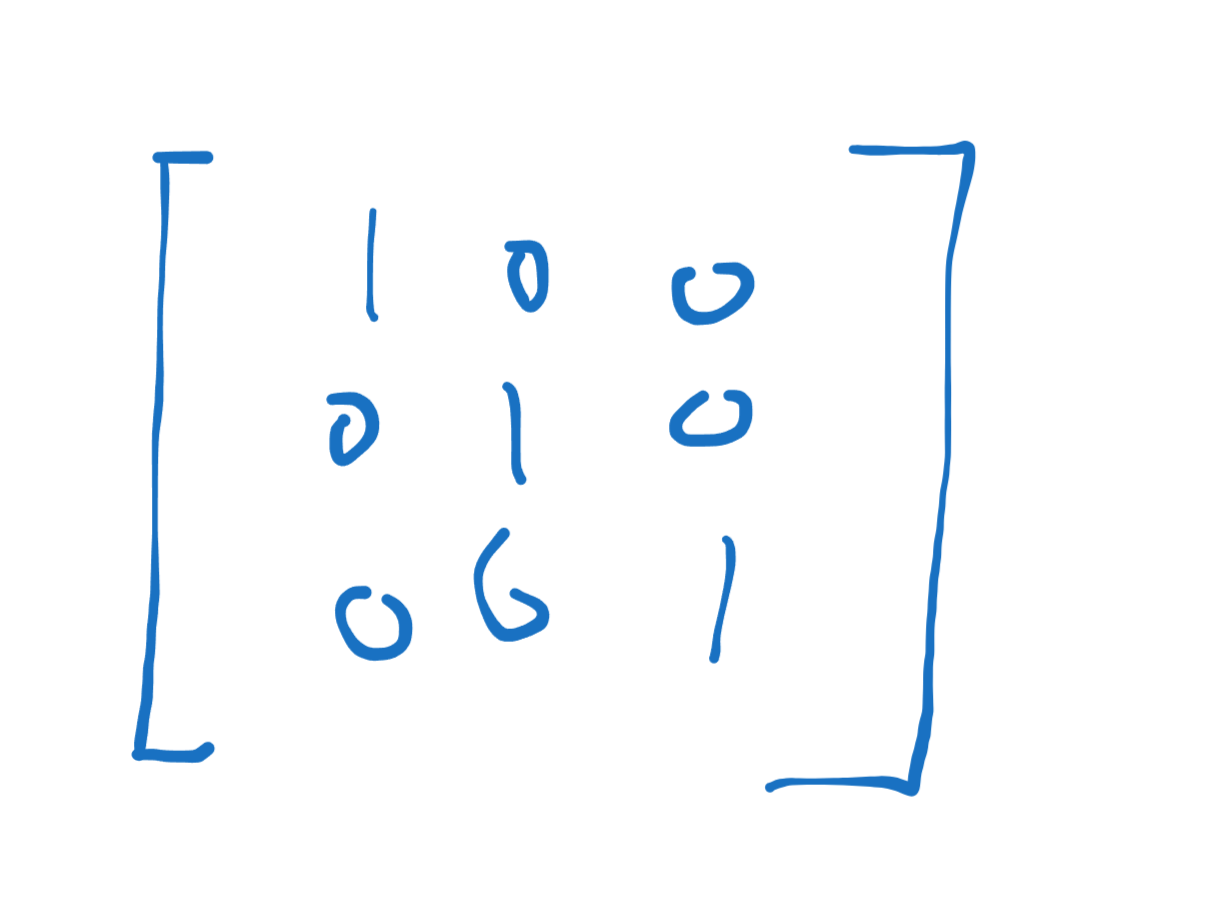 1 0 0
0 1 0
0 6 1